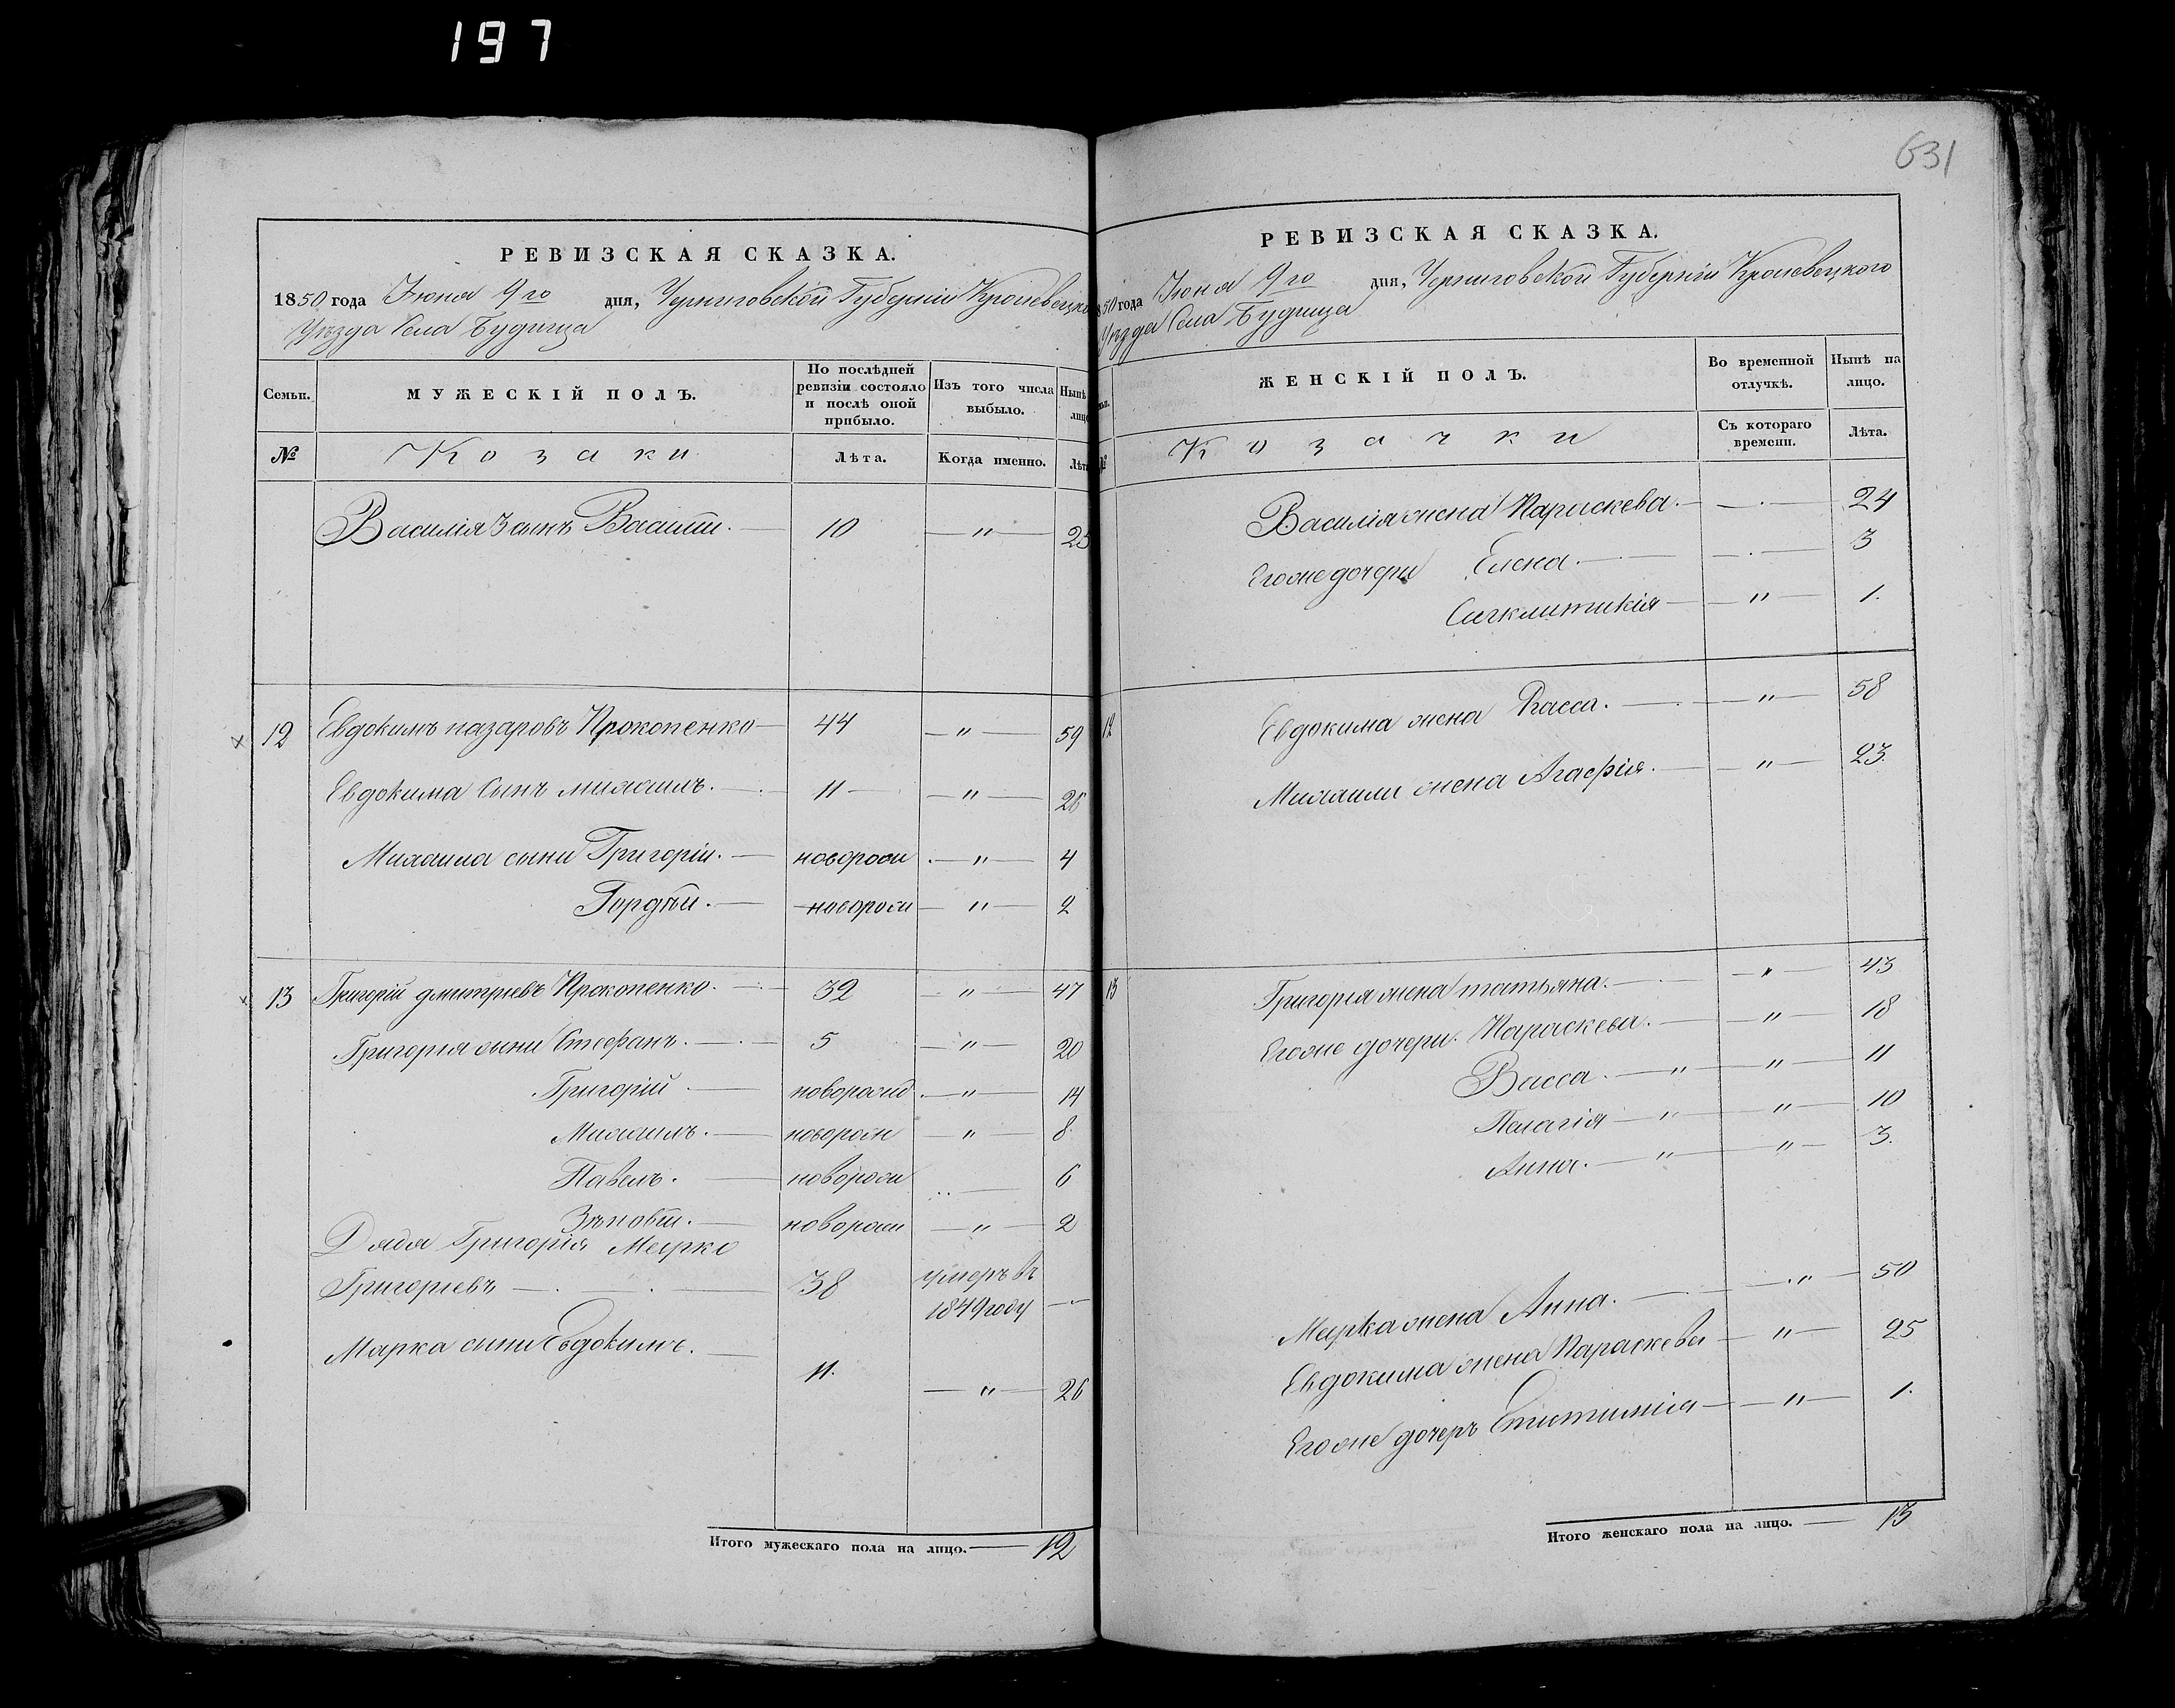 197
631
РЕВИЗСКАЯ СКАЗКА.
1850 года Июня 9го дня, Черниговской Губерніи Кролевецко
Уезда Села Будища
Семьи. МУЖЕСКІЙ ПОЛЪ. По послѣдней ревизіи состояло и послѣ оной прибыло. Изъ того числа выбыло. Нынѣ лицо
№ Козаки Лѣта. Когда именно. Лѣта
Василія 3 сынъ Василій. — 10 — " — 25
12 Евдокимъ назаровъ Прокопенко — 44 — " — 59
Евдокима Сынъ михаилъ. — 11 — " — 26
Михаила сыни Григорій. — новорож — " — 4
Гордѣй. — новорож — " — 2
13 Григорій дмитріевъ Прокопенко. — 32 — " — 47
Григорія сыни Стефанъ. — 5 — " — 20
Григорій — новорожд. — " — 14
Михаилъ. — новорож — " — 8
Павелъ. — новорож — 6
Зѣновій. — новорож — " — 2
Дядя Григорія Марко
Григоріевъ — 38 умеръ въ 1849 году —
Марка сыни Евдокимъ. — 11. — " — 26
Итого мужескаго пола на лицо. — 12
РЕВИЗСКАЯ СКАЗКА.
50 года Июня 9го дня, Черниговской Губерніи Кролевецкого
Уезда Села Будища
ЖЕНСКІЙ ПОЛЪ. Во временной отлучкѣ. Нынѣ на лицо.
№ Козачки Съ котораго времени. Лѣта.
Василія жена Параскева. — 24
Егоже дочери Елена. — 3
Сигклитикія — " — 1.
12 Евдокима жена Васса. — " — 58
Михаили жена Агафія. — " — 23.
13 Григорія жена татьяна. — " — 43
Егоже дочери. Параскева. — " — 18
Васса. — " — " — 11
Пелагія — " — " — 10
Анна. — " — " — 3.
Марка жена Анна. — " — 50
Евдокима жена Параскева — " — 25
Егоже дочерь — " — 1.
Итого женскаго пола на лицо. — 13